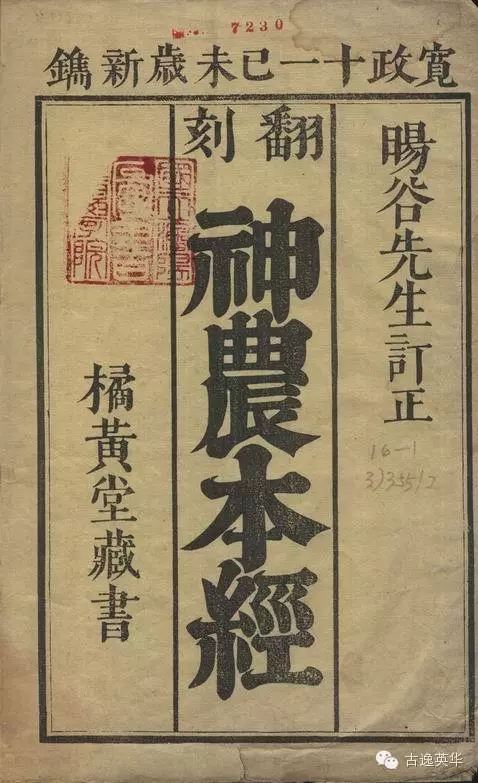 7230
寛政十一己未歳新鐫
暘谷先生訂正
翻刻
神農本經
橘黄堂藏書
16-1
古逸英华